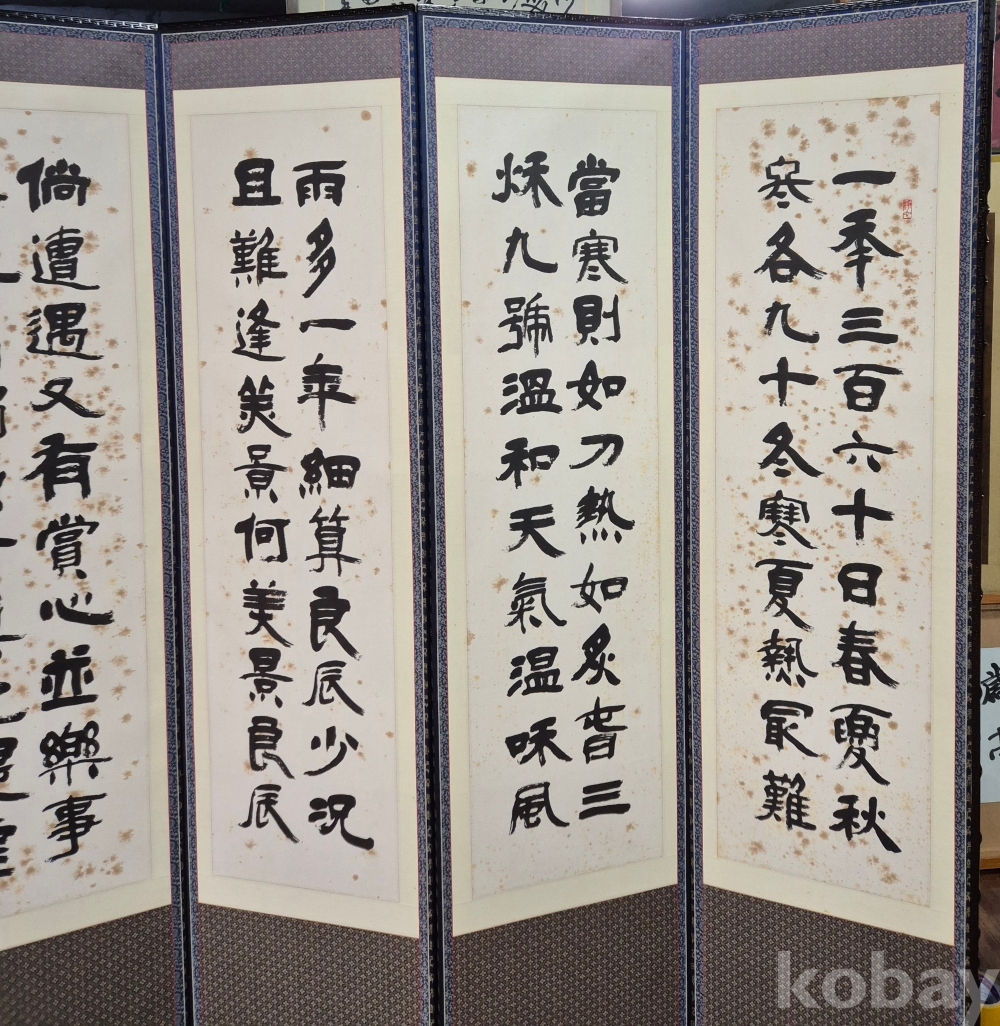 一秊三百六十日春夏秋
各九十冬寒夏熱冣難
當寒則如刀熱如炙萅三
秌九號溫和天氣温咊風
雨多一年細算良辰少況
且難逢美景何美景良辰
倘遭遇又有賞心並樂事
kobay